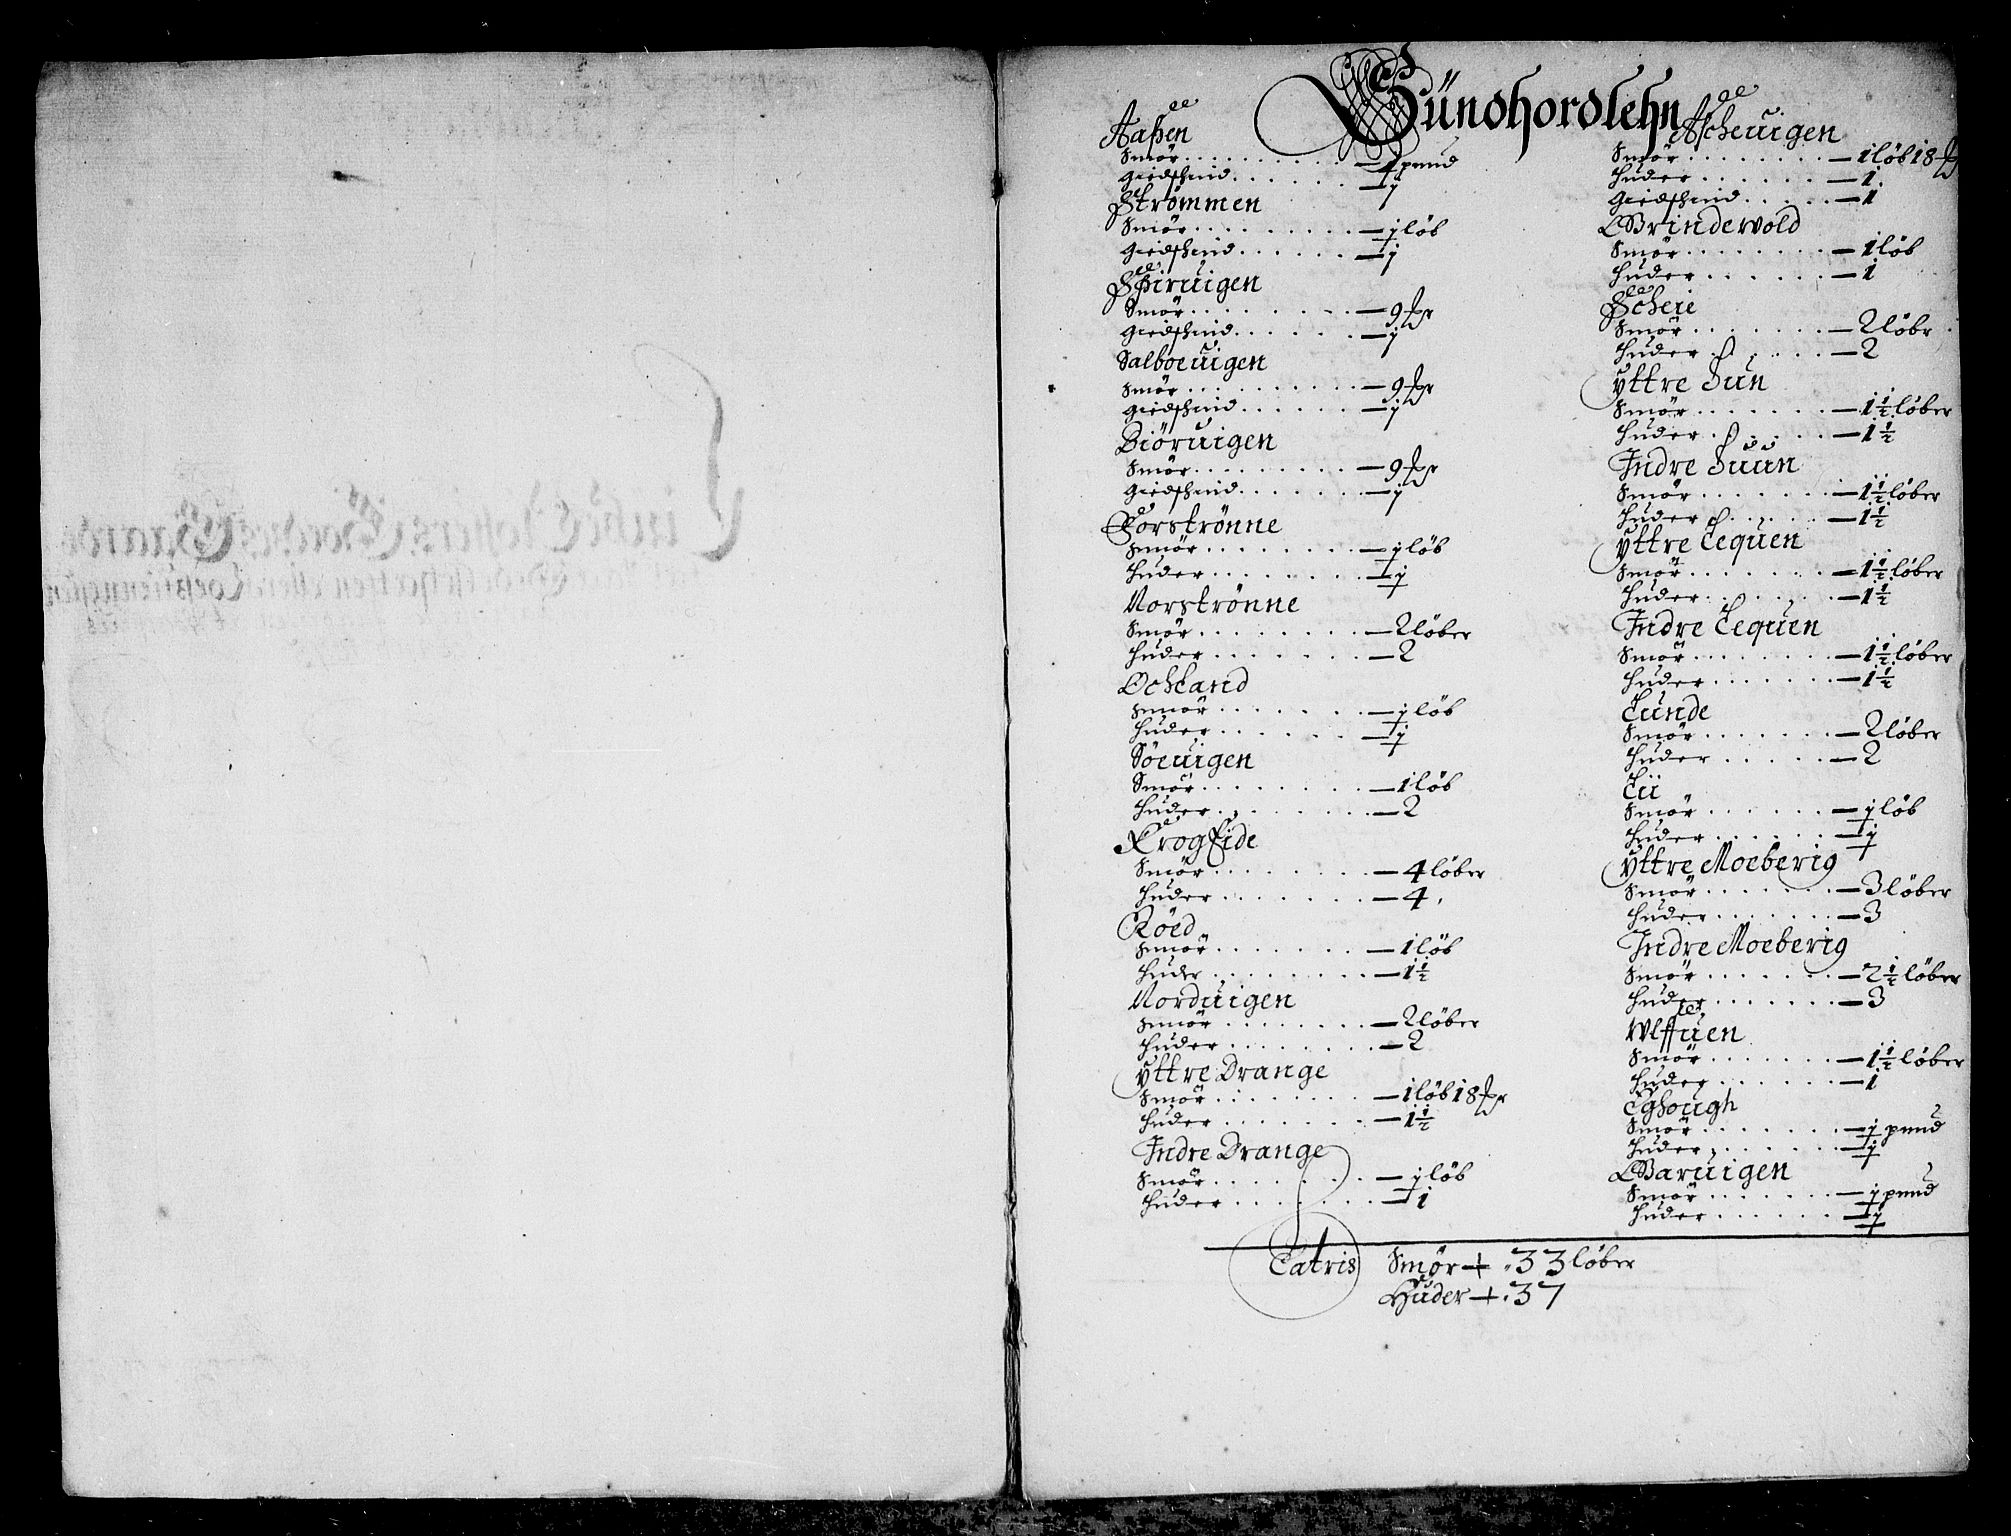 Sündhordlehn
Aaßen
Smör — 1 pund
giedschind — j
Strömmen
Smör — j löb
giedschend — j
Schiruigen
Smör — 9 ℔r
giedschind — j
Salboeuigen
Smör — 9 ℔r
giedschind — j
Biöruigen
Smör — 9 ℔r
giedschind — j
Forströnne
Smör — j löb
Huder — j
Norströnne
Smör — 2 löber
Huder — 2
Ochland
Smör — j löb
Huder — j
Söeuigen
Smör — 1 löb
Huder — 2
Krogeide
Smör — 4 löber
Huder — 4
Röed
Smör — 1 löb
Huder — 1½
Norduigen
Smör — 2 löber
Huder — 2
Yttre Drange
Smör — 1 löb 18 ℔r
Huder — 1½
Indre Drange
Smör — j löb
Huder — 1
Ascheuigen
Smör — 1 löb 18 ℔
Huder — 1
giedschind — 1
Grindewold
Smör — 1 löb
Huder — 1
Scheie
Smör — 2 löbr
Huder — 2
Yttre Lün
Smör — 1½ löber
Huder — 1½
Indre Lüün
Smör — 1½ löber
Huder — 1½
Yttre Tequen
Smör — 1½ löber
Huder — 1½
Indre Tequen
Smör — 1½ löber
Huder — 1½
Lunde
Smör — 2 löber
Huder — 2
Lii
Smör — j löb
Huder — j
Yttre Moeberig
Smör — 3 löber
Huder — 3
Indre Moeberig
Smör — 2½ löber
Huder — 3
Wlffuen
Smör — 1½ löber
Huder — 1
Smör — j pund
Huder — j
Baruigen
Smör — j pund
Huder — j
Latris Smör + 33 löber
Hüder + 37